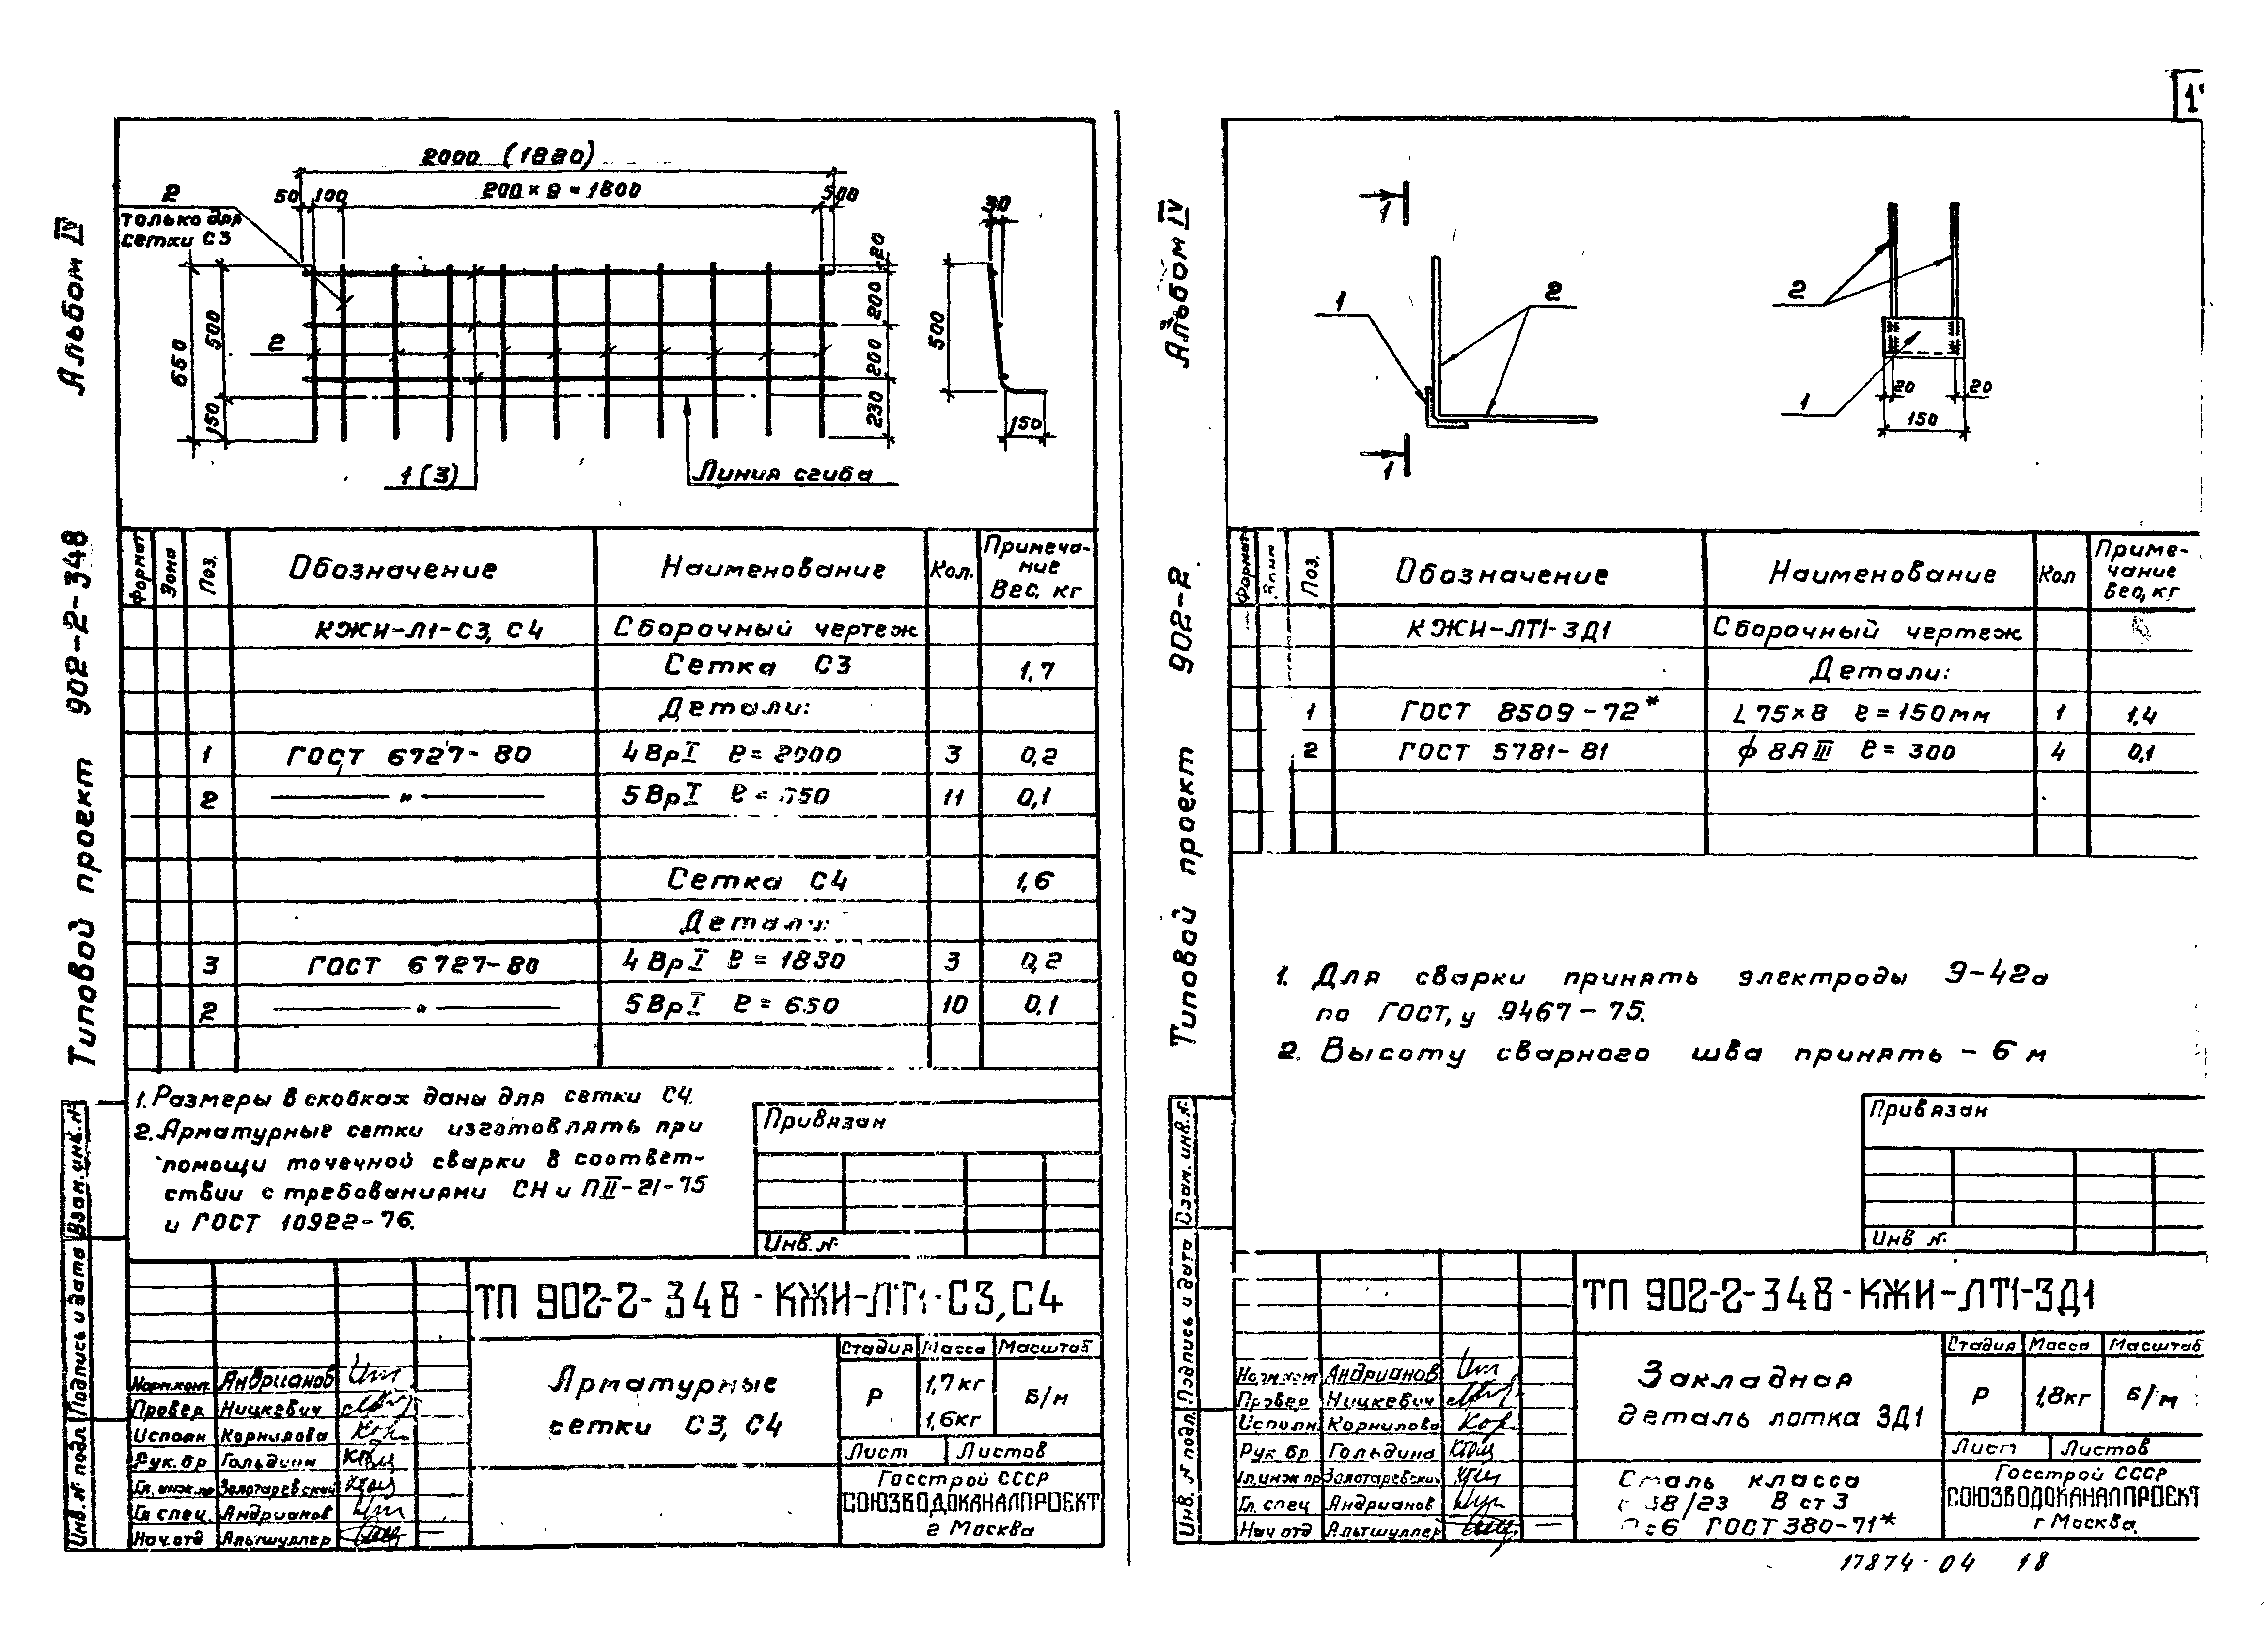 Альбом IV
Типовой проект 902-2-348
2000 (1880)
50 100 200 × 9 = 1800
2
только для
сетки С3
650
500
150
2
20
200
200
230
1 (3)
Линия сгиба
30
500
150
Формат Зона Поз. Обозначение Наименование Кол. Примеча-
ние
Вес, кг
КЖИ-Л1-С3, С4 Сборочный чертеж
Сетка С3 1,7
Детали:
1 ГОСТ 6727-80 4 ВрI ℓ = 2000 3 0,2
2 — " — 5 ВрI ℓ = 650 11 0,1
Сетка С4 1,6
Детали
3 ГОСТ 6727-80 4 ВрI 3 0,2
2 — " — 5 ВрI ℓ = 650 10 0,1
1. Размеры в скобках даны для сетки С4.
2. Арматурные сетки изготовлять при
помощи точечной сварки в соответ-
ствии с требованиями СН и ПII-21-75
и ГОСТ 10922-76.
Привязан
Инв. №
Взам. инв. №
Подпись и дата
Инв. № подл.
ТП 902-2-348-КЖИ-ЛТ1-С3, С4
Арматурные
сетки С3, С4
Стадия Масса Масштаб
Р 1,7кг Б/м
1,6кг
Лист Листов
Госстрой СССР
СОЮЗВОДОКАНАЛПРОЕКТ
г Москва
Норм.конт. Андрианов
Провер Ницкевич
Исполн Корнилова
Рук. бр Гольдина
Гл. инж. пр Золотаревский
Гл спец. Андрианов
Нач. отд Альтшуллер
Альбом IV
Типовой проект 902-2
1
1
1
2
2
1
20
20
150
Формат Поз. Обозначение Наименование Кол Приме-
чание
Вес, кг
КЖИ-ЛТ1-ЗД1 Сборочный чертеж
Детали:
1 ГОСТ 8509-72* L 75×8 ℓ = 150мм 1 1,4
2 ГОСТ 5781-81 ф 8АIII ℓ = 300 4 0,1
1. Для сварки принять электроды Э-42а
по ГОСТ,у 9467-75.
2. Высоту сварного шва принять - 6 м
Привязан
Инв №
Взам. инв. №
Подпись и дата
Инв. № подл.
ТП 902-2-348-КЖИ-ЛТ1-ЗД1
Закладная
деталь лотка ЗД1
Стадия Масса Масштаб
Р 1,8кг Б/м
Лист Листов
Сталь класса
38/23 В ст 3
6 ГОСТ 380-71*
Госстрой СССР
СОЮЗВОДОКАНАЛПРОЕКТ
г Москва.
Норм.конт Андрианов
Провер Ницкевич
Исполн. Корнилова
Рук бр Гольдина
Гл. инж пр Золотаревский
Гл. спец Андрианов
Нач отд Альтшуллер
17874-04 18